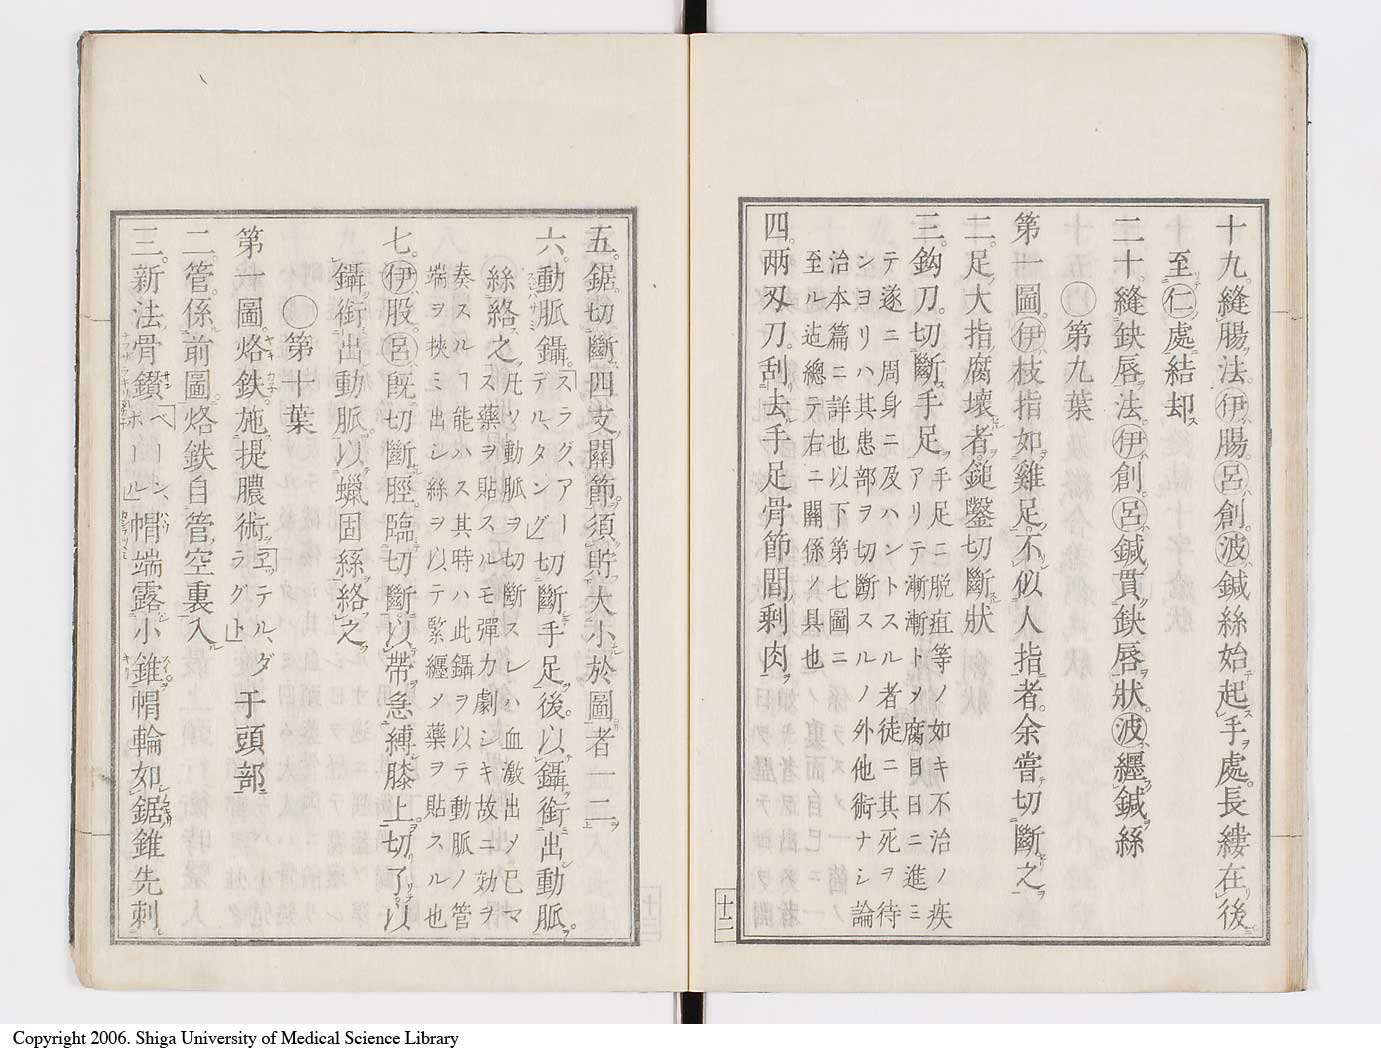 十九縫腸法伊腸呂創波鍼絲始起手處長縷在後
至仁處結却
二十縫缺唇法伊創呂鍼貫缺唇狀波纒鍼絲
○第九葉
第一圖伊枝指如雞足不似人指者余嘗切斷之
二足大指腐壞者鎚鑿切斷狀
三鈎刀切斷手足手足ニ脱疽等ノ如キ不治ノ疾
アリテ漸漸トメ腐目日ニ進ミ
テ遂ニ周身ニ及ハントスル者徒ニ其死ヲ待
ンヨリハ其患部ヲ切斷スルノ外他術ナシ論
治本篇ニ詳也以下第七圖ニ
至ル迠總テ右ニ關係ノ具也
四兩刄刀刮去手足骨節間剩肉
十二
五鋸切斷四支關節須貯大小於圖者一二
六動脈鑷スラグ、アーデル、タング切斷手足後以鑷銜出動脈
絲絡之凢ソ動脈ヲ切斷スレハ血激出メ巳マ
ス藥ヲ貼スルモ彈力劇シキ故ニ効ヲ
奏スルヿ能ハス其時ハ此鑷ヲ以テ動脈ノ管
端ヲ挾ミ出シ絲ヲ以テ緊纒メ藥ヲ貼スル也
七伊股呂旣切斷脛臨切斷以帶急縛膝上切了以
鑷銜出動脈以蠟固絲絡之
○第十葉
第一圖烙鉄施提膿術ヱッテル、ダラグト于頭部
二管係前圖烙鉄自管空裏入
三新法骨鑽ベーン、ボール帽端露小錐帽輪如鋸錐先刺
Copyright 2006. Shiga University of Medical Science Library